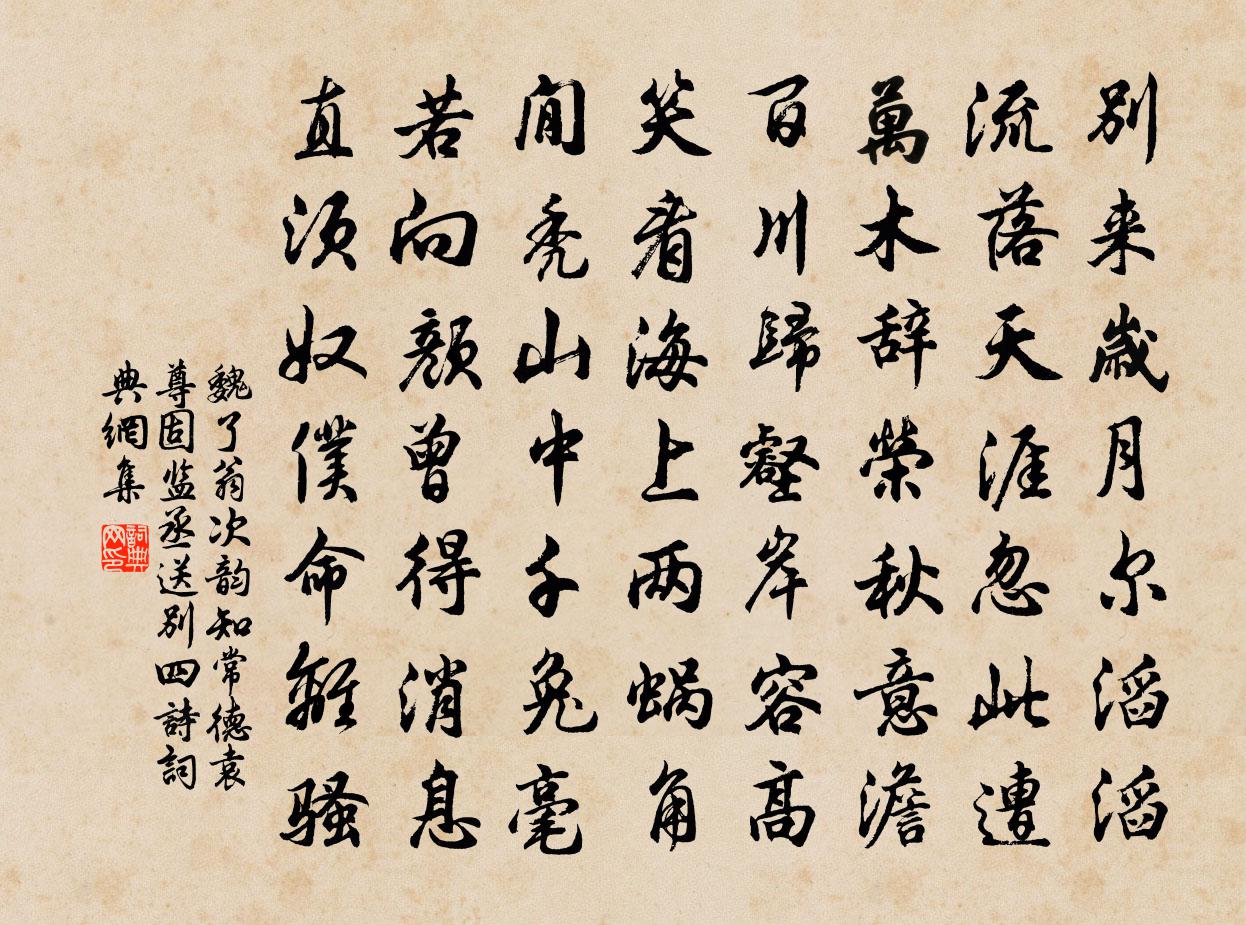 别来岁月尔滔滔
流落天涯忽此遭
萬木辞荣秋意澹
百川歸壑岸容高
笑看海上两蜗角
閒秃山中千兔毫
若向颜曾得消息
直须奴僕命離骚
魏了翁次韵知常德袁
尊固监丞送别四詩詞
典網集
詞典
网印